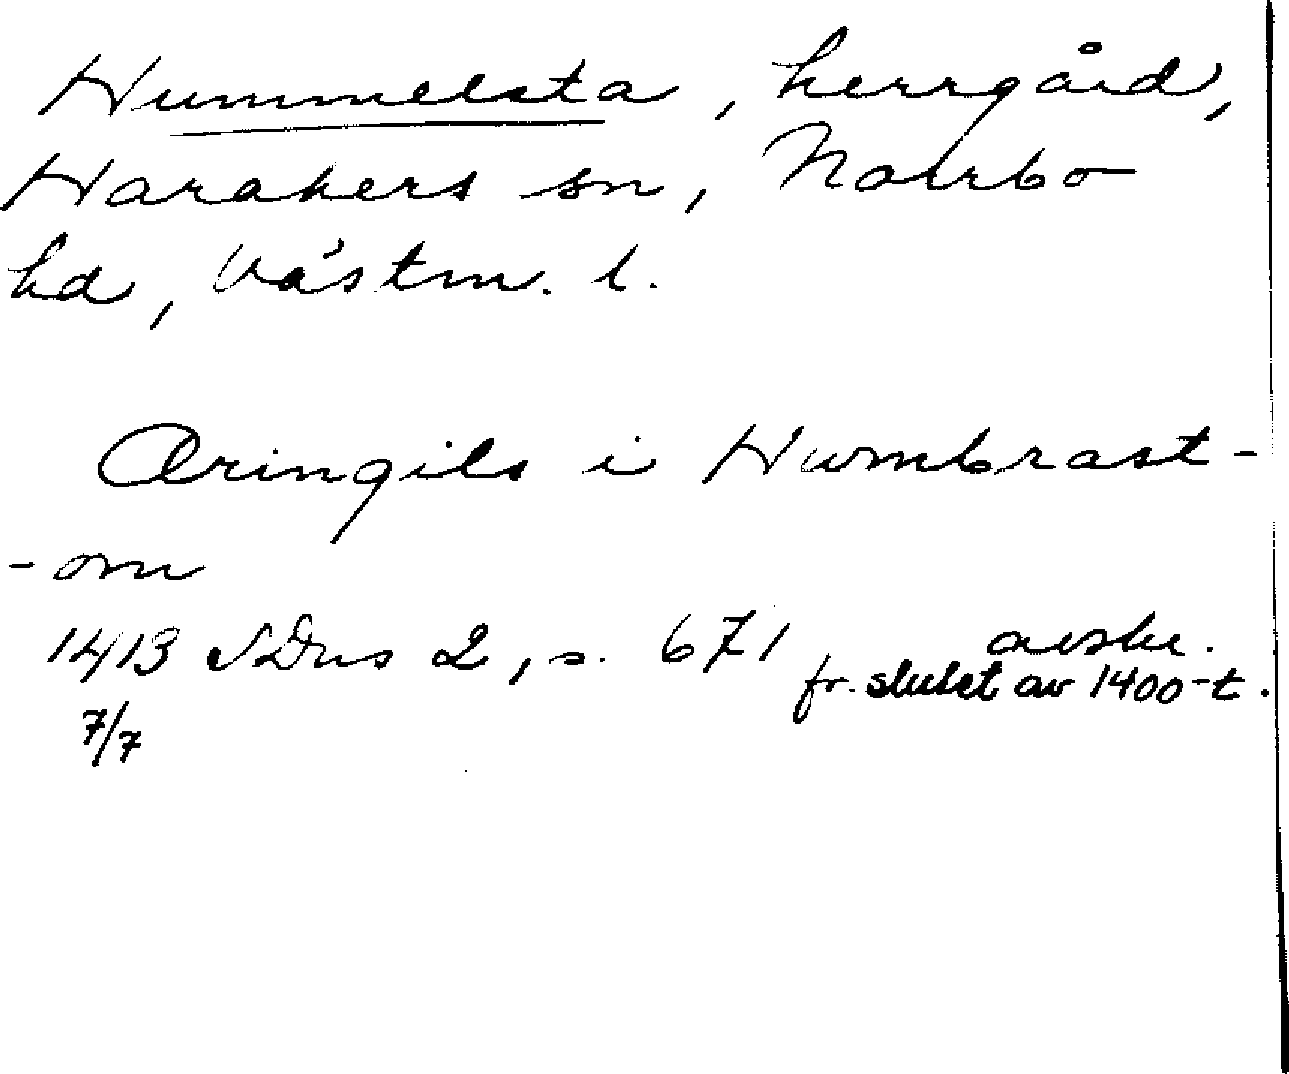 Hummelsta, herrgård,
Harakers sn, Norrbo
hd, Västm. l.
Æringils i Humbrast-
-om
1413 SDns 2, s. 671 avskr.
fr. slutet av 1400-t.
7/7